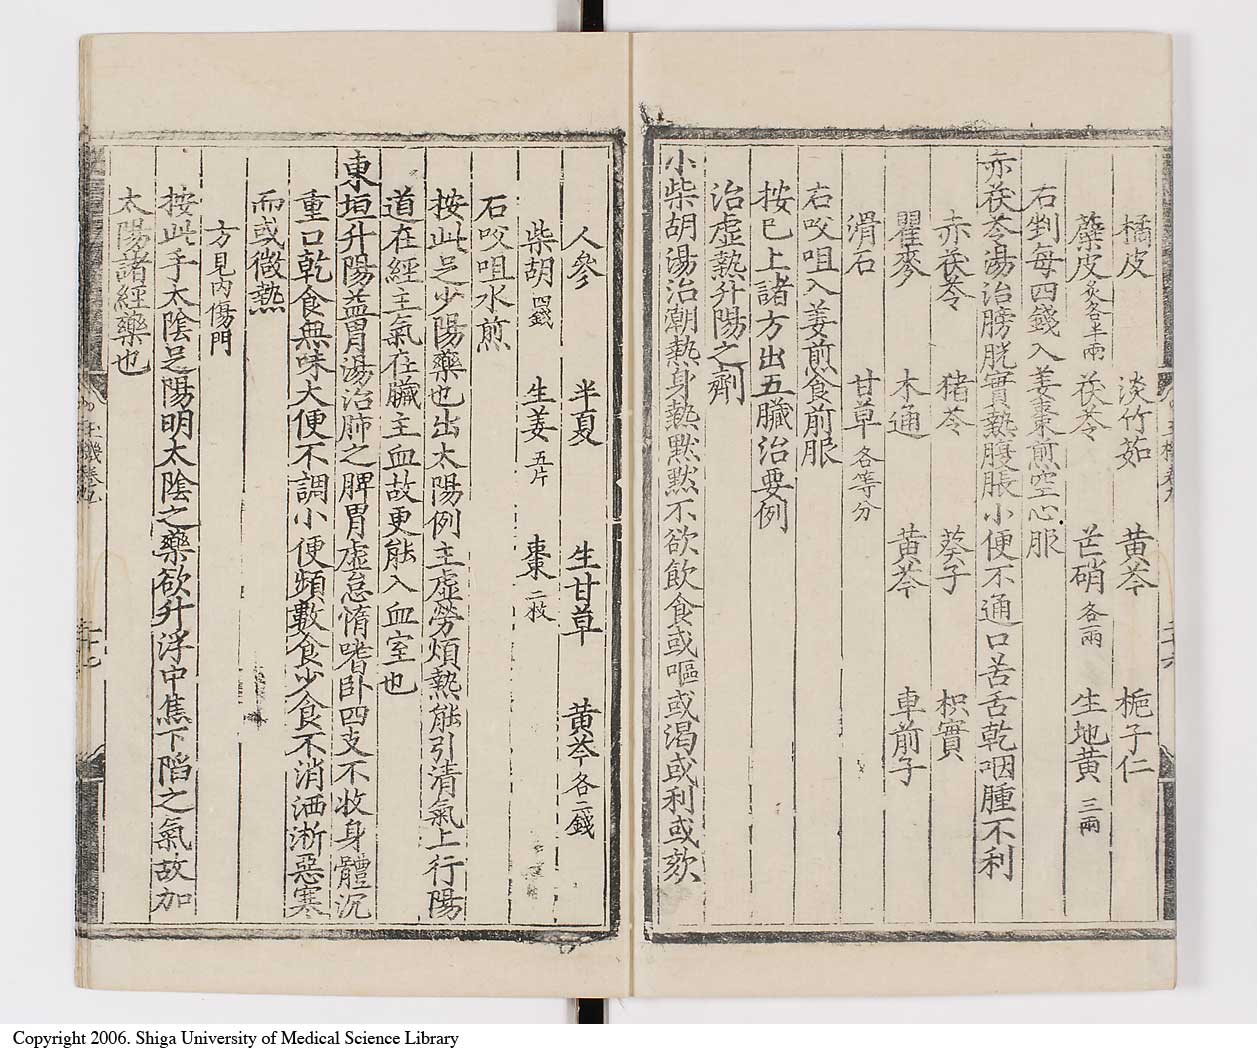 橘皮 淡竹茹 黄芩 梔子仁
蘗皮炙各半兩 茯苓 芒硝各兩 生地黄三兩
右剉每四錢入姜棗煎空心服
赤茯苓湯治膀胱實熱腹脹小便不通口苦舌乾咽腫不利
赤茯苓 猪苓 葵子 枳實
瞿麥 木通 黄芩 車前子
滑石 甘草各等分
右㕮咀入姜煎食前服
按已上諸方出五臟治要例
治虛熱升陽之劑
小柴胡湯治潮熱身熱默默不欲飲食或嘔或渴或利或欬
人參 半夏 生甘草 黄芩各二錢
柴胡四錢 生姜五片 棗二枚
石㕮咀水煎
按此足少陽藥也出太陽例主虛勞煩熱能引清氣上行陽
道在經主氣在臟主血故更能入血室也
東垣升陽益胃湯治肺之脾胃虛怠惰嗜卧四支不收身體沉
重口乾食無味大便不調小便頻數食少食不消洒淅惡寒
而或微熱
方見内傷門
按此手太陰足陽明太陰之藥欲升浮中焦下陷之氣故加
太陽諸經藥也
Copyright 2006. Shiga University of Medical Science Library